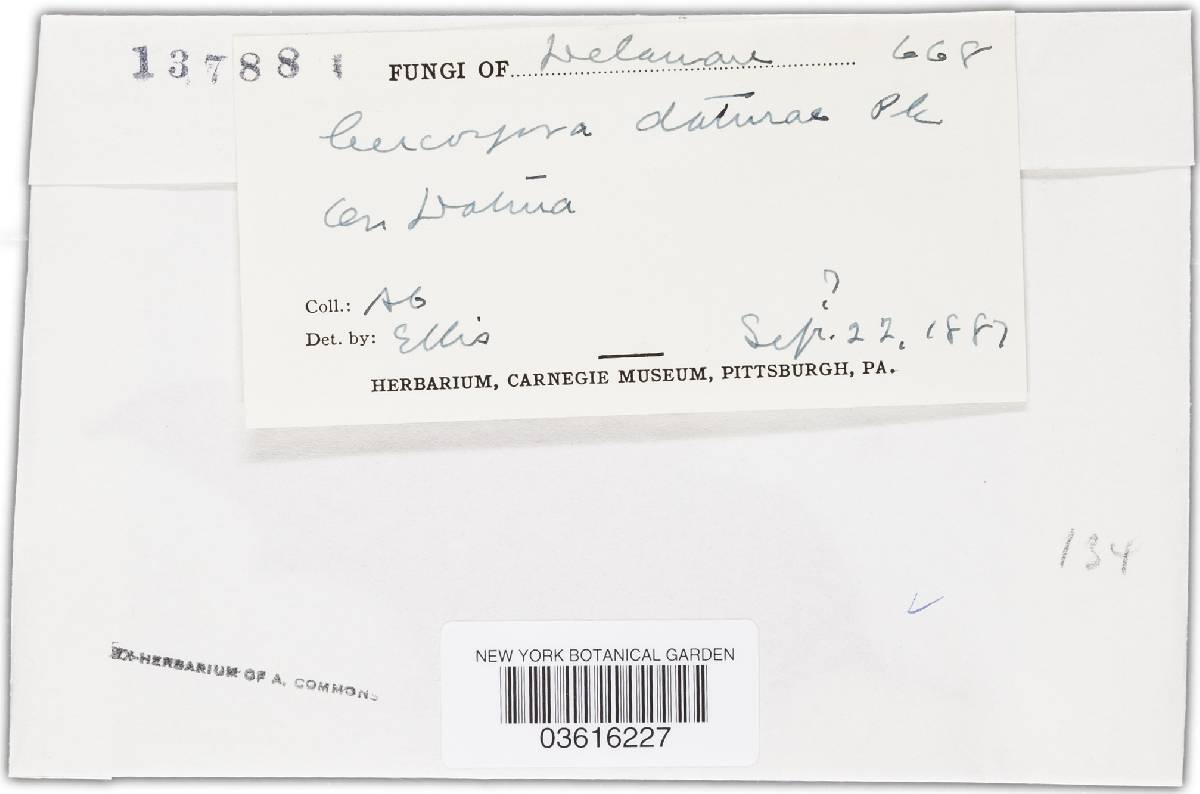 137881
FUNGI OF Delaware 668
Cercospora daturae Pk
On Datura
Coll.: AC
?
Det. by: Ellis
Sep. 22, 1887
HERBARIUM, CARNEGIE MUSEUM, PITTSBURGH, PA.
134
EX-HERBARIUM OF A. COMMONS
NEW YORK BOTANICAL GARDEN
03616227